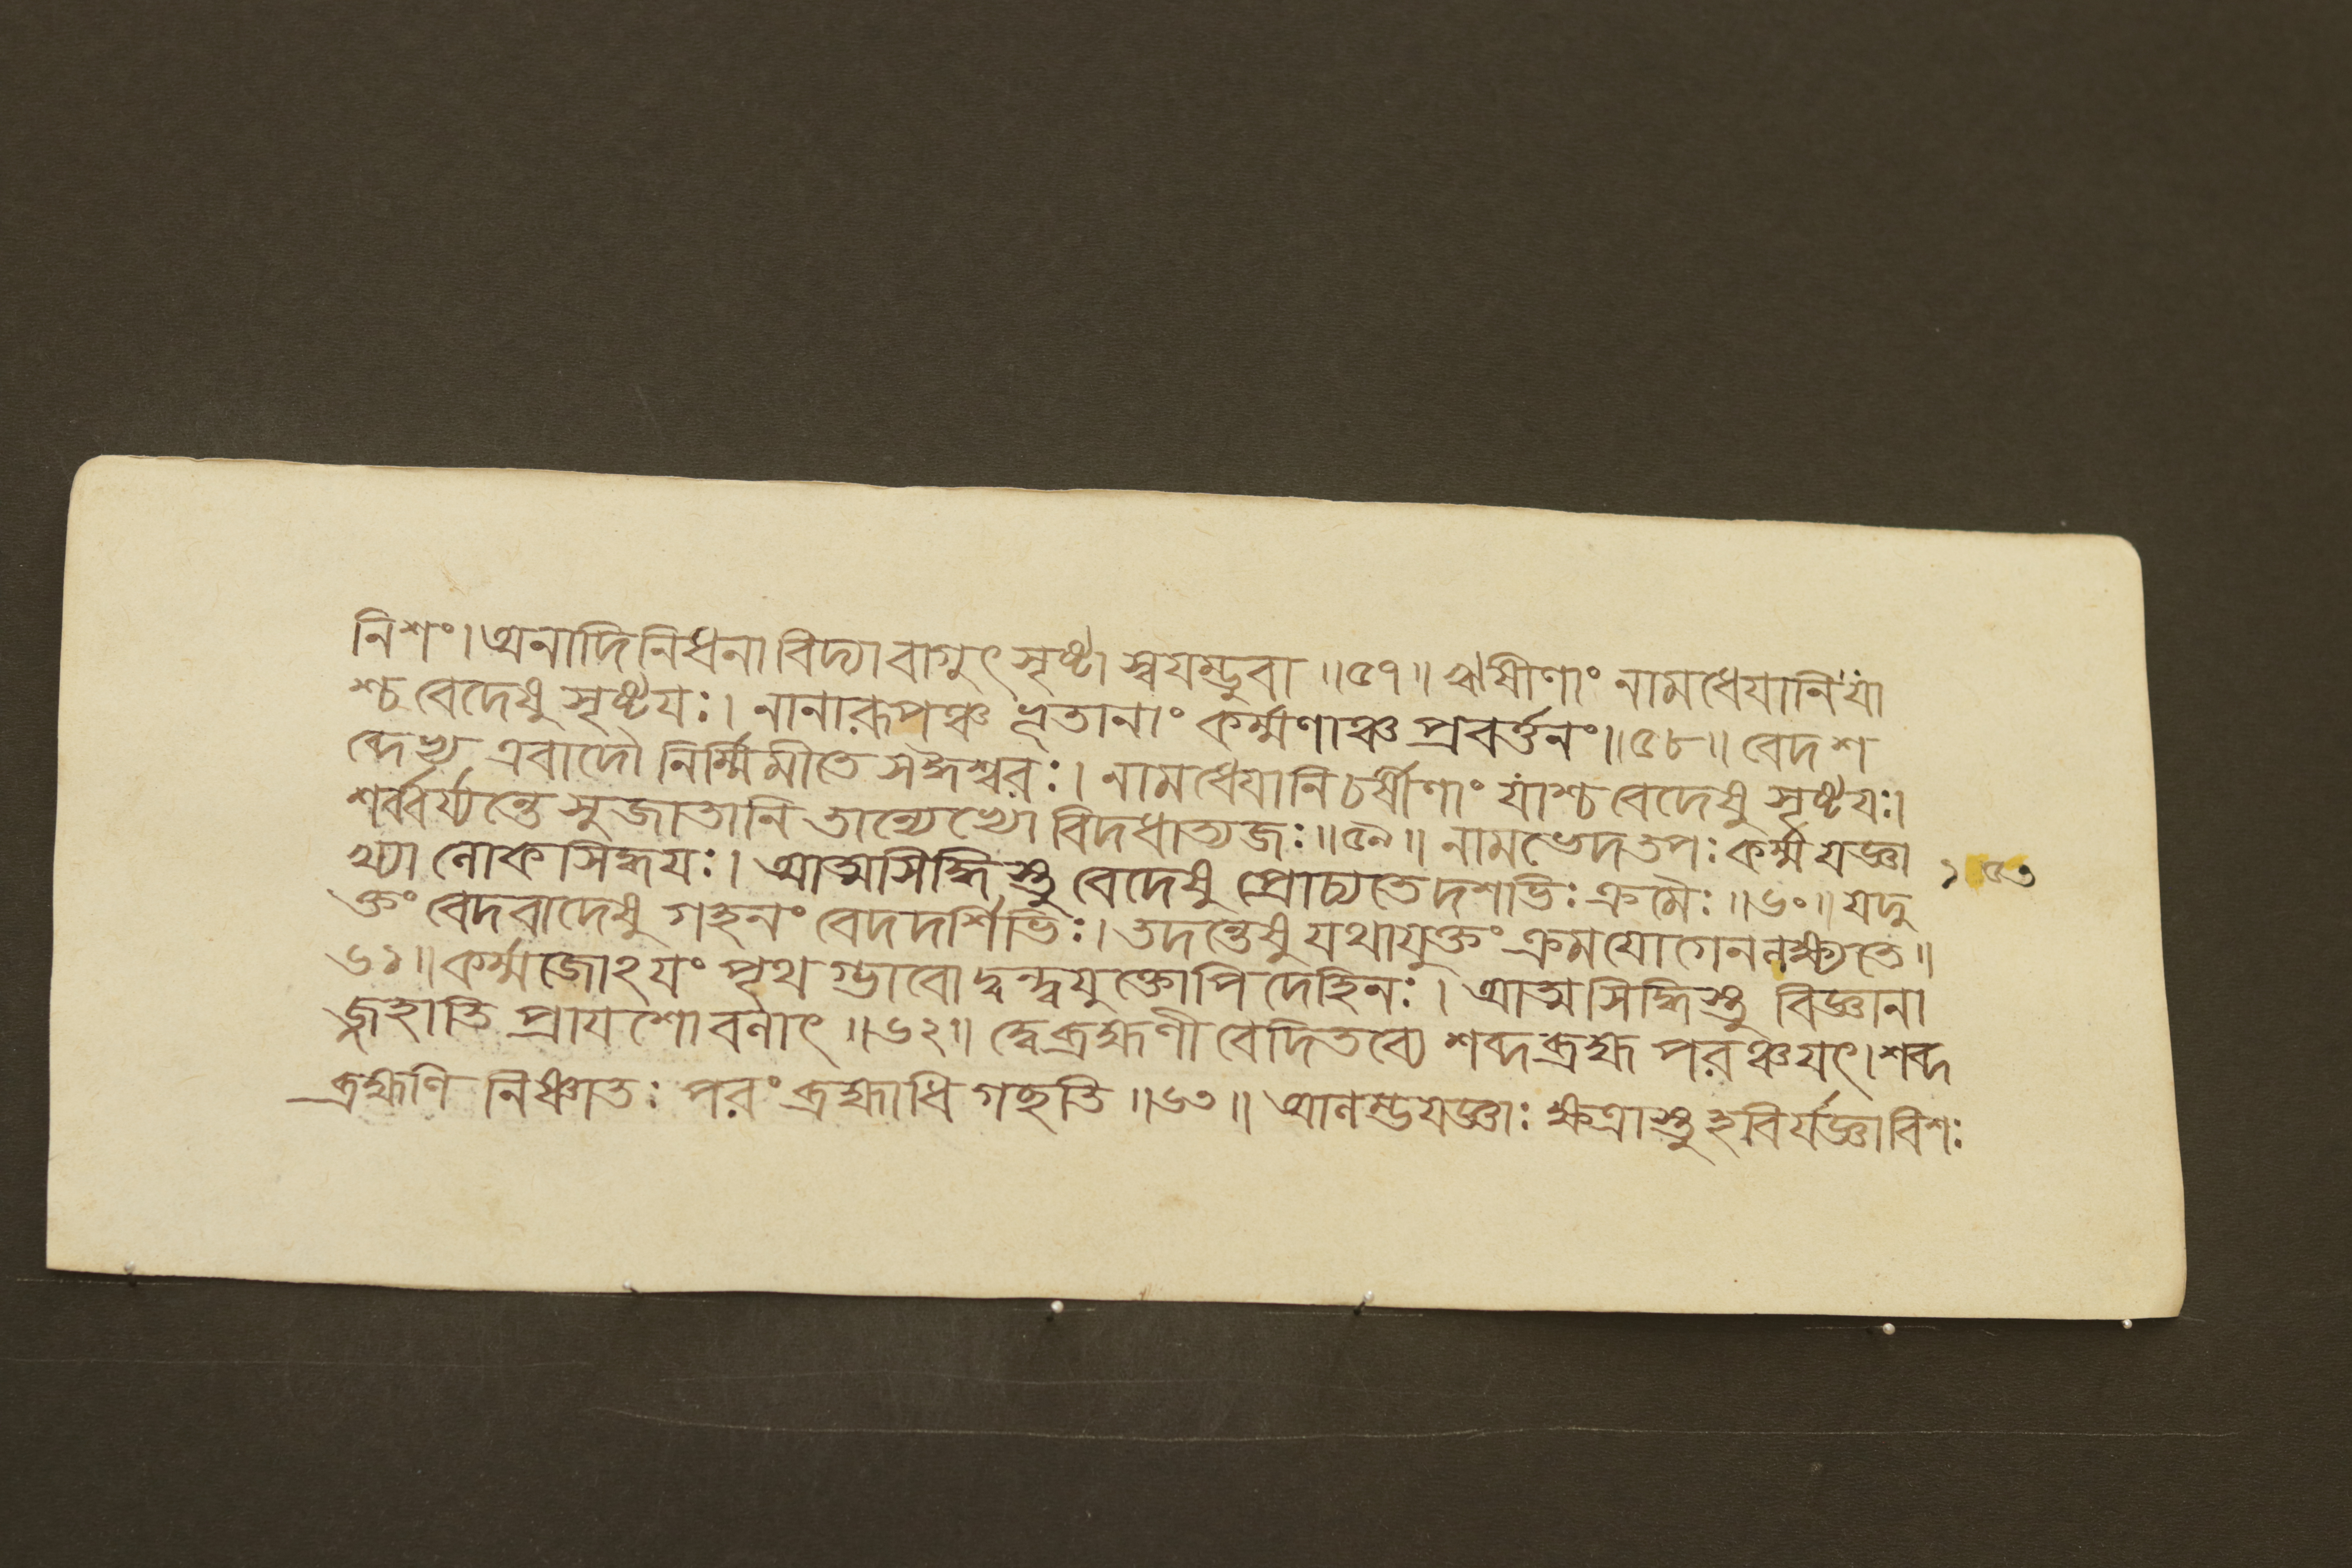 নিশং। অনাদিনিধনা বিদ্যা বাগুৎসৃষ্টা স্বযম্ভুবা ॥৫৭॥ ঋষীণাং নামধেযানি যাং
শ্চ বেদেষু সৃষ্টযঃ। নানারূপঞ্চ ভূতানাং কর্ম্মণাঞ্চ প্রবর্ত্তনং॥৫৮॥ বেদশ
ব্দেভ্য এবাদৌ নির্ম্মিমীতে স ঈশ্বরঃ। নামধেযানি চর্ষীণাং যাংশ্চ বেদেষু সৃষ্টযঃ।
শর্ব্বর্য্যন্তে সুজাতানি তান্যেভ্যো বিদধাত্যজঃ॥৫৯॥ নামভেদতপঃকর্ম্মযজ্ঞা
খ্যা লোকসিদ্ধযঃ। আত্মসিদ্ধিস্তু বেদেষু প্রোচ্যতে দশভিঃ ক্রমৈঃ॥৬০॥ যদু
১৫৩
ক্তং বেদবাদেষু গহনং বেদদর্শিভিঃ। তদন্তেষু যথাযুক্তং ক্রমযোগেন লক্ষ্যতে॥
৬১॥ কর্ম্মজোঽযং পৃথগ্ভাবো দ্বন্দ্বযুক্তোপি দেহিনঃ। আত্মসিদ্ধিস্তু বিজ্ঞানা
জ্জহাতি প্রাযশো বলাৎ॥৬২॥ দ্বে ব্রহ্মণী বেদিতব্যে শব্দব্রহ্ম পরঞ্চ যৎ। শব্দ
ব্রহ্মণি নিষ্ণাতঃ পরং ব্রহ্মাধিগচ্ছতি॥৬৩॥ আলম্ভযজ্ঞাঃ ক্ষত্রাস্তু হবির্যজ্ঞা বিশঃ